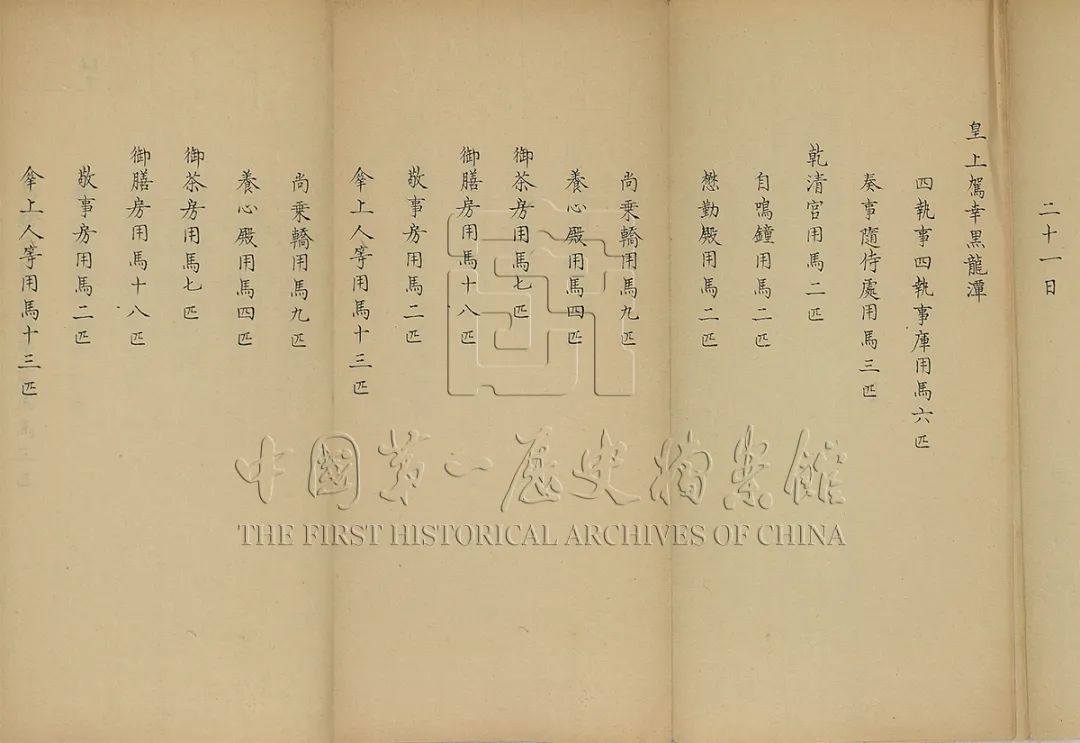 二十一日
皇上駕幸黑龍潭
四執事四執事庫用馬六匹
奏事隨侍處用馬三匹
乾清宮用馬二匹
自鳴鐘用馬二匹
懋勤殿用馬二匹
尚乗轎用馬九匹
養心殿用馬四匹
御茶房用馬七匹
御膳房用馬十八匹
敬事房用馬二匹
傘上人等用馬十三匹
尚乗轎用馬九匹
養心殿用馬四匹
御茶房用馬七匹
御膳房用馬十八匹
敬事房用馬二匹
傘上人等用馬十三匹
中国第一歷史档案館
THE FIRST HISTORICAL ARCHIVES OF CHINA